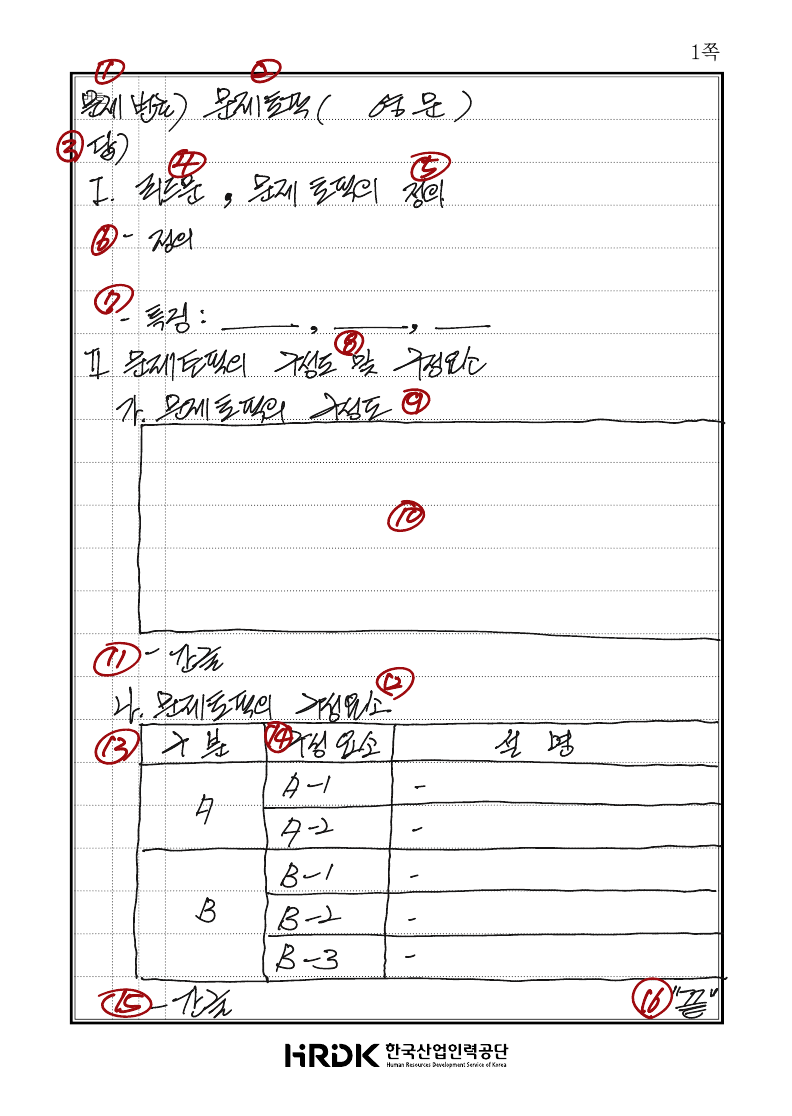 1쪽
① ②
문제 번호) 문제토픽( 영 문 )
③ 답)
④ ⑤
I. 리드문, 문제 토픽의 정의
⑥ - 정의
⑦ - 특징 : , ,
⑧
II. 문제토픽의 구성도 및 구성요소
가. 문제토픽의 구성도 ⑨
⑩
⑪ - 간글
나. 문제토픽의 구성요소 ⑫
⑬ 구 분 ⑭ 구성 요소 설 명
A A-1 -
A-2 -
B B-1 -
B-2 -
B-3 -
⑮ - 간글 ⑯ "끝"
HRDK 한국산업인력공단
Human Resources Development Service of Korea